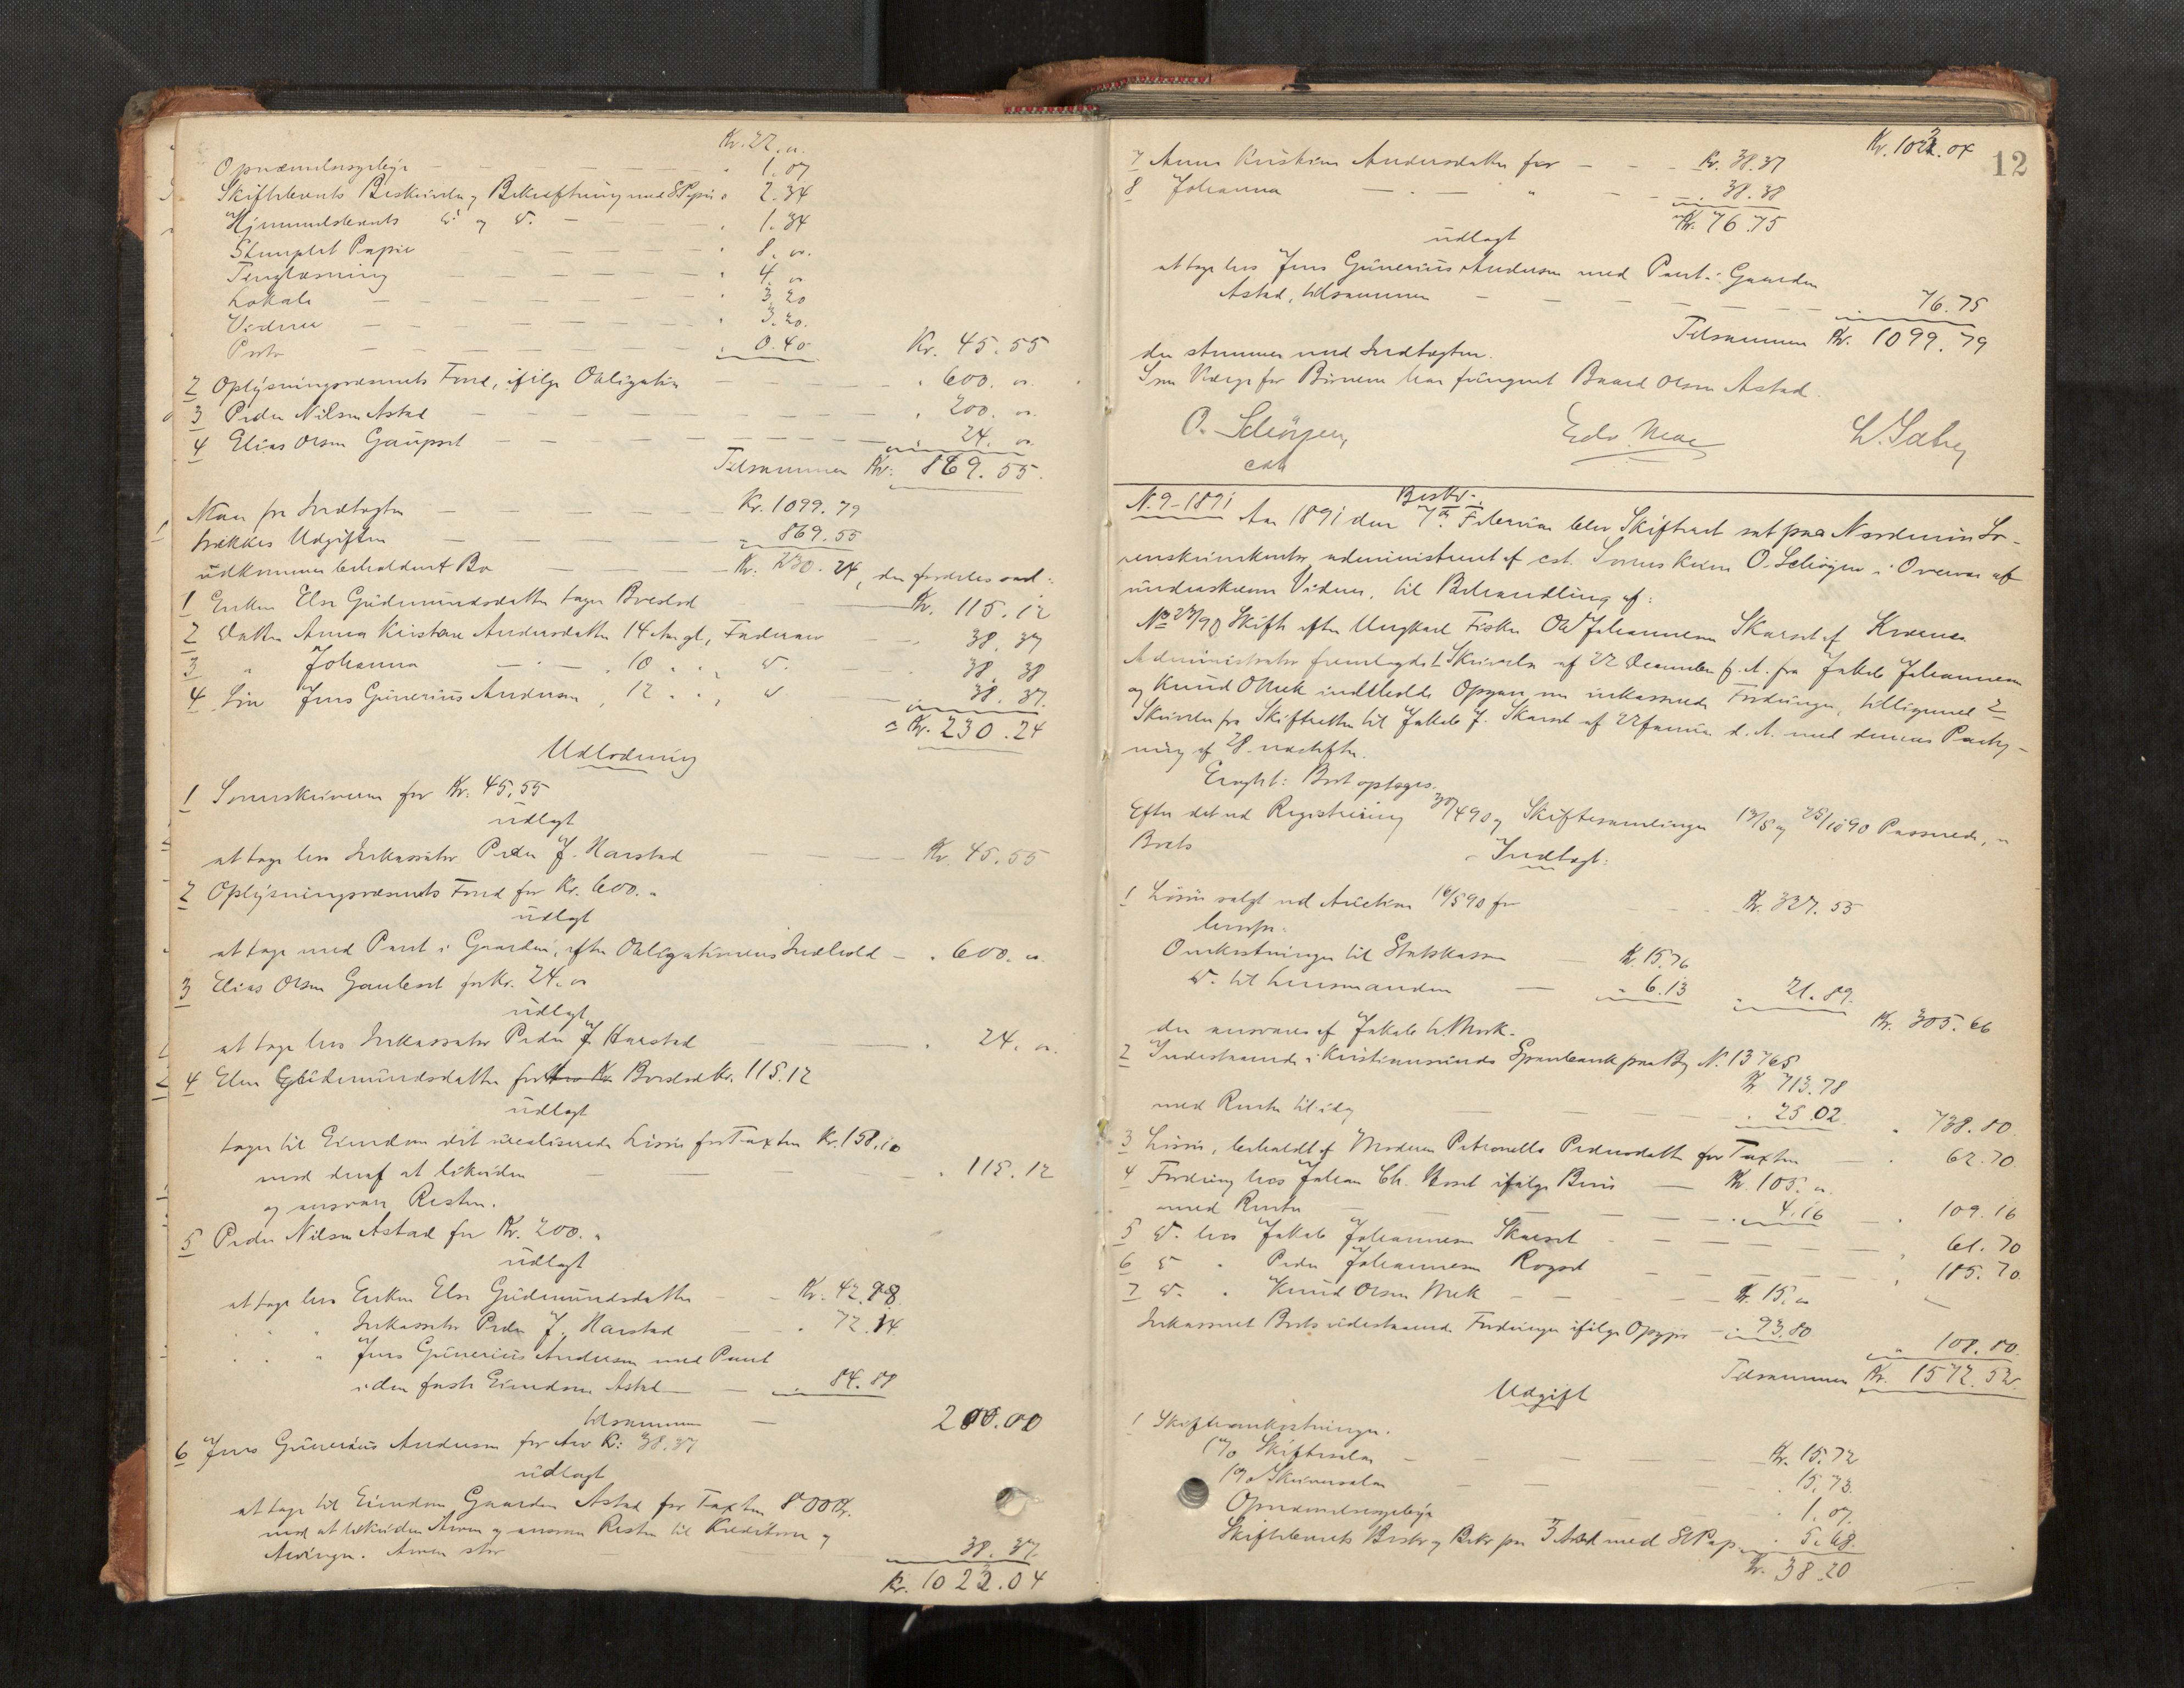 Kr. 22. "
Opnævnelsesgebyr — — — " 1.07
Skiftebrevets Beskrivelse og Bekræftning med StPapir " 2.34
Hjemmelsbrevets do og do. — — " 1.34
Stemplet Papir — — — " 8. "
Tinglæsning — — — " 4. "
Lokale — — — " 3.20
Vidner — — — " 3.20.
Porto — — — " 0.40 Kr. 45.55
2 Oplysningsvæsenets Fond, ifølge Obligation — " 600. "
3 Peder Nilsen Astad — — " 200. "
4 Elias Olsen Gaupset — — " 24. "
Tilsammen Kr. 869.55.
Naar fra Indtægten — — Kr. 1099.79
trækkes Udgiften — — " 869.55
udkommer beholdent Bo — — Kr. 230.24, der fordeles saal.:
1 Enken Else Gudmundsdatter tager Boeslod — Kr. 115.12
2 Datter Anna Kristine Andersdatter 14 Aar gl, Fædrearv — " 38.37
3 " Johanna — " — , 10 " " , do. — " 38.38
4 Søn Jens Gunerius Andersen , 12 " " , do — " 38.37.
= Kr. 230.24
Udlodning
1 Sorenskriveren for Kr. 45.55
udlagt
at tage hos Inkassator Peder J. Harstad — — Kr. 45.55
2 Oplysningsvæsenets Fond for Kr. 600. "
udlagt
at tage med Pant i Gaarden, efter Obligationens Indhold — " 600. "
3 Elias Olsen Gaubset for Kr. 24. "
udlagt
at tage hos Inkassator Peder J. Harstad — " 24. "
4 Else Gudmundsdatter for Boeslod Kr. 115.12
udlagt
tager til Eiendom det urealiserede Løsøre for Taxten Kr. 158.10
mod deraf at likvidere — — " 115.12
og ansvare Resten.
5 Peder Nilsen Astad for Kr. 200. "
udlagt
at tage hos Enken Else Gudmundsdatter — Kr. 42.98
" " " Inkassator Peder J. Harstad — " 72.14
" " " Jens Gunerius Andersen med Pant
i den faste Eiendom Astad — " 84.88
tilsammen — 200.00
6 Jens Gunerius Andersen for Arv Kr. 38.37
udlagt
at tage til Eiendom Gaarden Astad for Taxten 800 Kr.
mod at likvidere Arven og ansvare Resten til Kreditorer og
Arvinger. Arven stor — — 38.37.
Kr. 1023.04
Kr. 1023.04
12
7 Anna Kristine Andersdatter for — — Kr. 38.37
8 Johanna — " — " — " 38.38
Kr. 76.75
udlagt
at tage hos Jens Gunerius Andersen med Pant i Gaarden
Astad, tilsammen — — — 76.75
Tilsammen Kr. 1099.79
der stemmer med Indtægten.
Som Værge for Børnene har fungeret Baard Olsen Astad.
O. Schörgen,
cst
Edv. Moe
N. 9-1891
Beskr.
Aar 1891 den 7de Februar blev Skifteret sat paa Nordmør So-
renskriverkontor administreret af cst. Sorenskriver O. Schörgen i Overvær af
underskrevne Vidner, til Behandling af:
No 27/90 Skifte efter Ungkarl Fisker Ole Johannesen Skarset af Kvernes
Administrator fremlagde 1 Skrivelse af 22 December f. A. fra Jakob Johannesen
og Knud O Mek indeholdende Opgave over inkasserede Fordringer, tilligemed 2
Skrivelse fra Skifteretten til Jakob J. Skarset af 22 Januar d. A. med dennes Paateg-
ning af 28. næstefter.
Eragtet: Boet optages.
Efter det ved Registrering 30/4 90 og Skiftesamlinger 17/5 og 25/10 90 Passerede, er
Boets
Indtægt:
1 Løsøre solgt ved Auction 16/5 90 for — Kr. 327.55
herfra:
Omkostninger til Statskassen — Kr. 15.76
do. til Lensmanden — " 6.13 " 21.89.
Kr. 305.66
der ansvares af Jakob
2 Indestaaende i Kristiansunds Sparebank paa Bog N. 13765
Kr. 713.78
med Renter til idag — — " 25.02 " 738.80.
3 Løsøre, beholdt af Moderen Petronelle Pedersdatter for Taxten — " 62.70.
4 Fordring hos Johan Chr. ifølge Bevis — Kr. 105. "
med Renter — — " 4.16 " 109.16
5 do. hos Jakob Johannesen Skarset — — " 61.70
6 do " Peder Johannesen Rogset — — " 185.70.
7 do. " Knud Olsen Mek — — Kr. 15. "
Inkasseret Boets udestaaende Fordringer ifølge Opgjør — " 93.80
" 108.80.
Tilsammen Kr. 1572.52.
Udgift
1 Skifteomkostninger.
1% Skiftesalær — — Kr. 15.72
1% Skriversalær — — " 15.73.
Opnævnelsesgebyr — — " 1.07.
Skiftebrevets Beskr. og Bekr. paa 3 Ark med StPap. — " 5.68.
Kr. 38.20